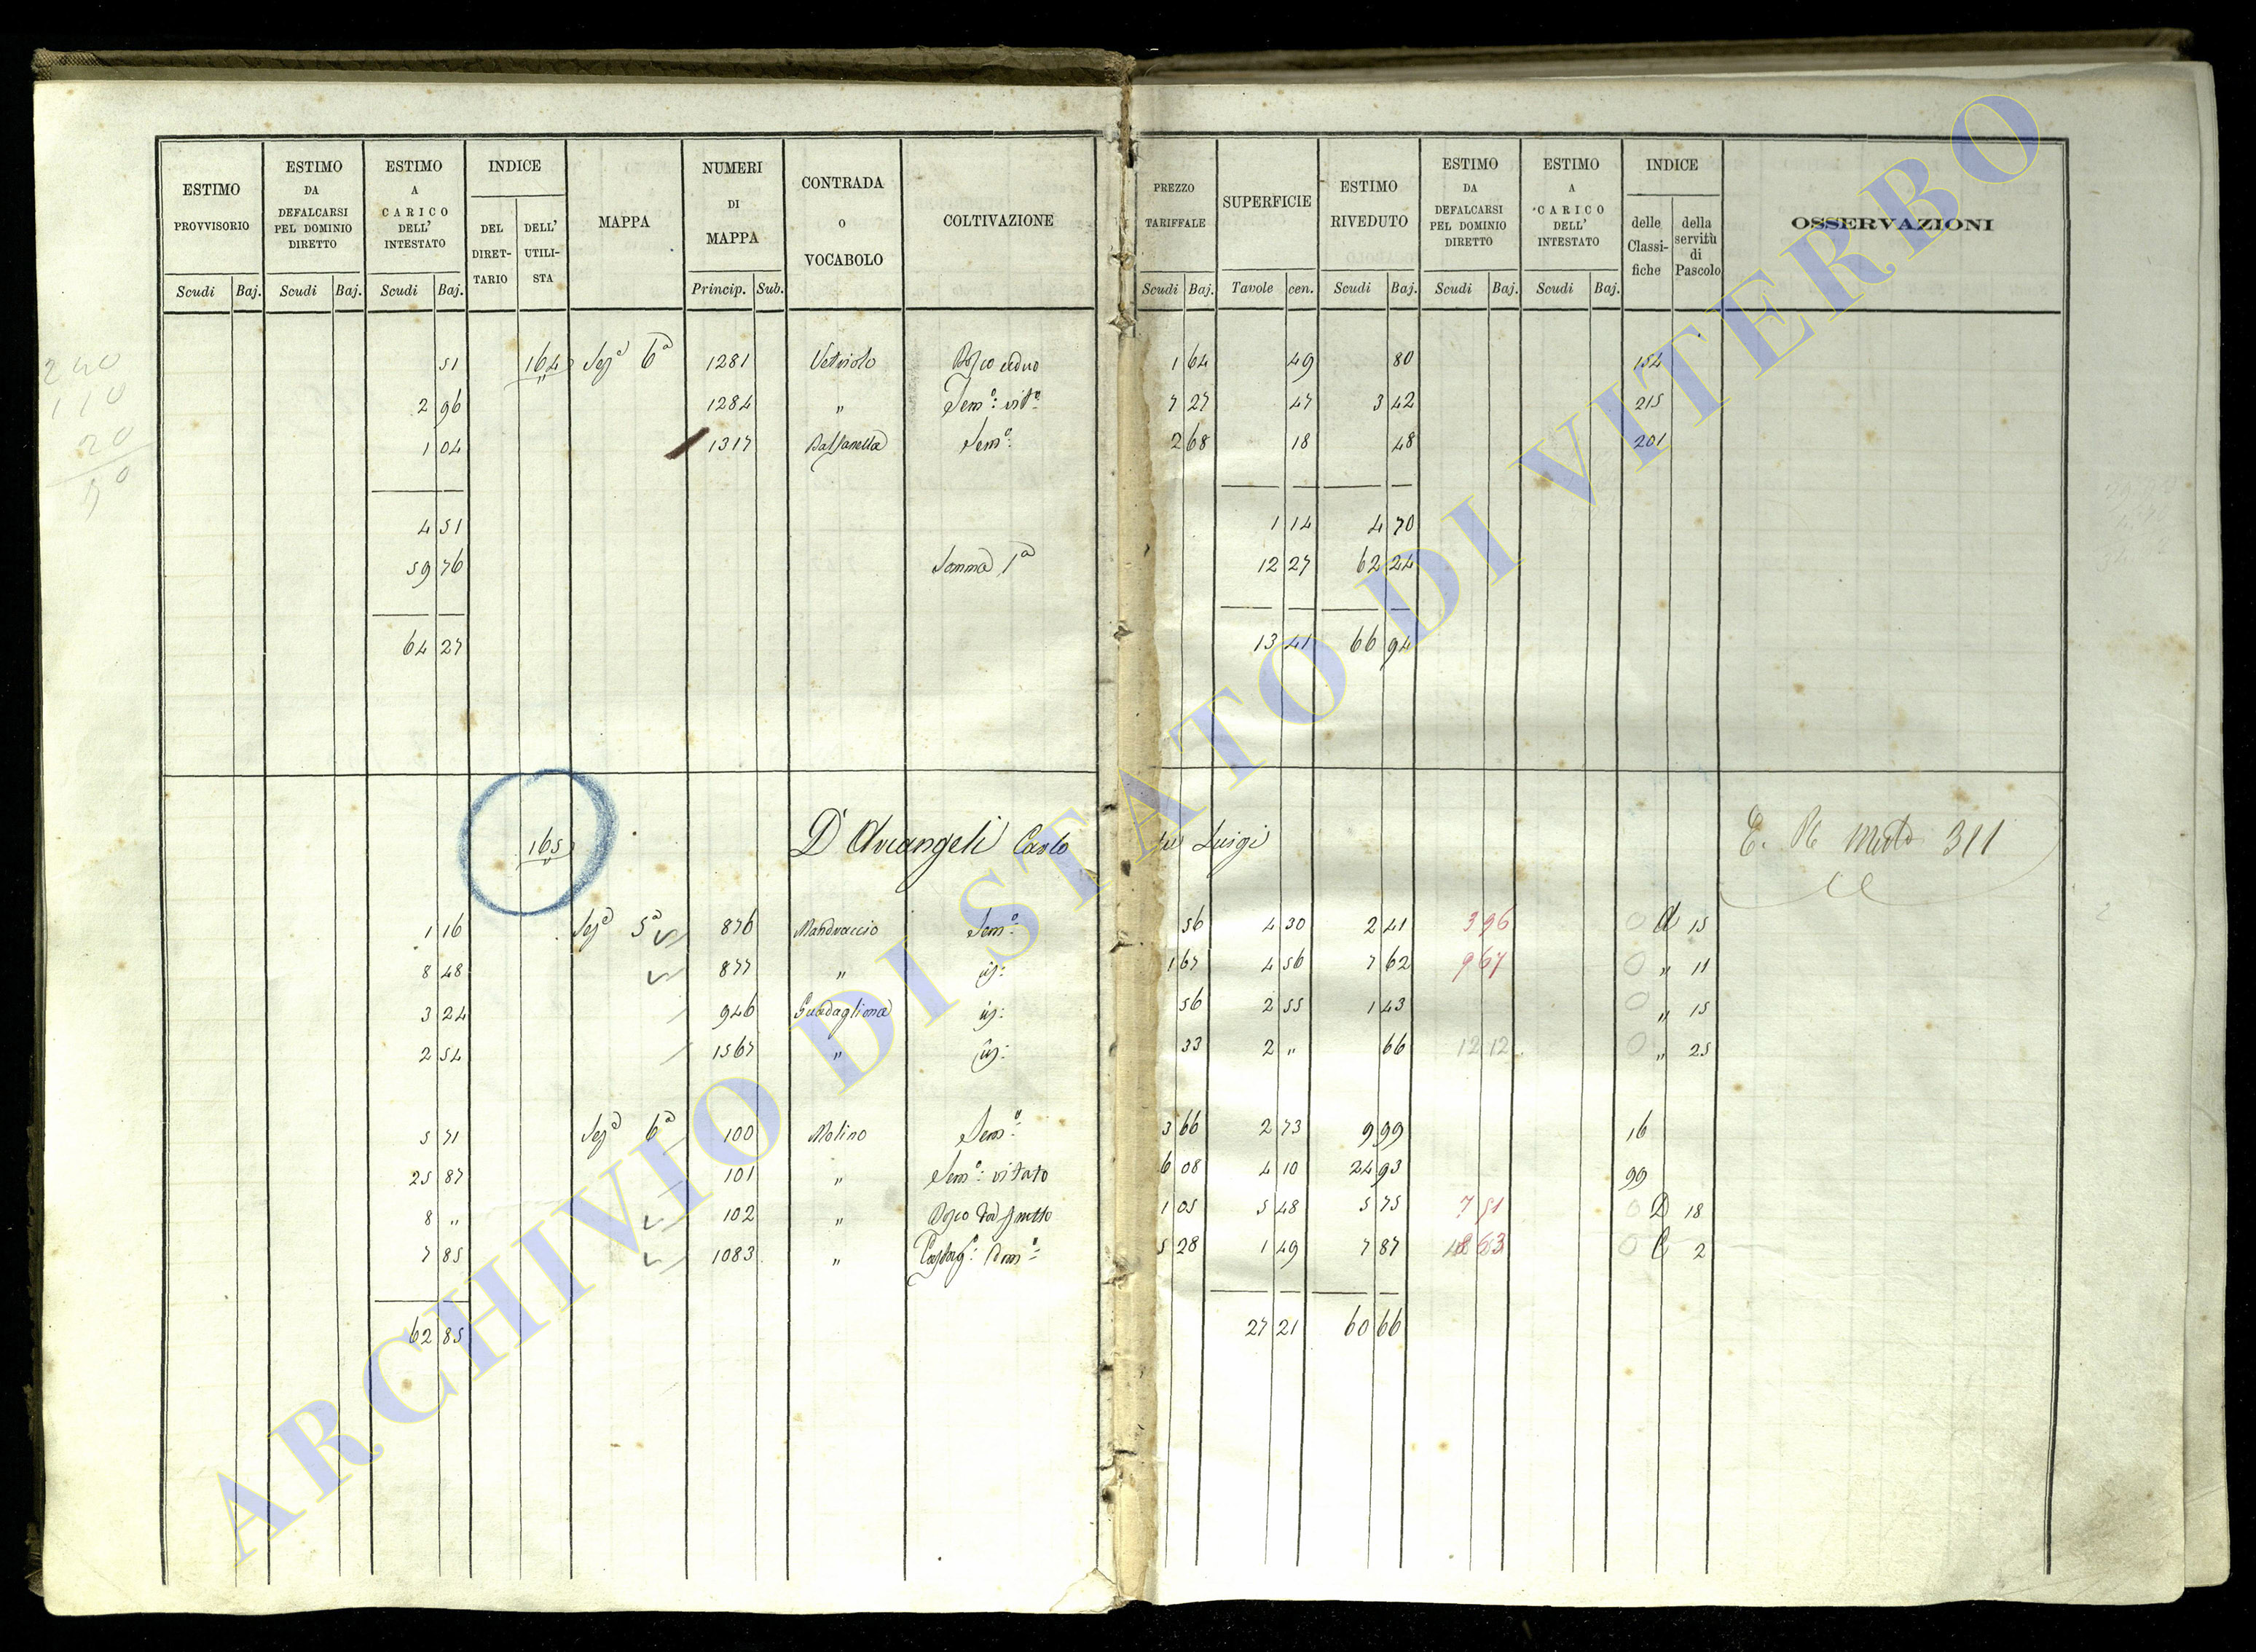 ESTIMO PROVVISORIO
ESTIMO DA DEFALCARSI PEL DOMINIO DIRETTO
ESTIMO A CARICO DELL' INTESTATO
INDICE
DEL DIRETTARIO
DELL' UTILISTA
MAPPA
NUMERI DI MAPPA
CONTRADA o VOCABOLO
COLTIVAZIONE
PREZZO TARIFFALE
SUPERFICIE
ESTIMO RIVEDUTO
ESTIMO DA DEFALCARSI PEL DOMINIO DIRETTO
ESTIMO A CARICO DELL' INTESTATO
INDICE
delle Classifiche
della servitù di Pascolo
OSSERVAZIONI
Scudi Baj. Scudi Baj. Scudi Baj. Princip. Sub. Scudi Baj. Tavole cen. Scudi Baj. Scudi Baj. Scudi Baj.
51 164 Sez.a 6a 1281 Vetriolo Bosco ceduo 1 64 49 80 154
2 96 1284 " Sem.o: vit.o 7 27 47 3 42 215
1 04 1317 Sem.o: 2 68 18 48 201
4 51 1 14 4 70
59 76 Somma 1a 12 27 62 24
64 27 13 41 66 94
165 D'Arcangeli Carlo fu Luigi 311
1 16 Sez.a 5a 876 Sem.o: 56 4 30 2 41 3 96 15
8 48 877 " 1 67 4 56 7 62 9 67 " 11
3 24 946 56 2 55 1 43 " 15
2 54 1567 " 33 2 " 66 12 12 " 25
5 71 Sez.a 6a 100 Molino Sem.o: 3 66 2 73 9 99 16
25 87 101 " Sem.o: vitato 6 08 4 10 24 93 99
8 " 102 " Bosco da frutto 1 05 5 48 5 75 7 51 D 18
7 85 1083 " 5 28 1 49 7 87 C 2
62 85 27 21 60 66
240
110
20
ARCHIVIO DI STATO DI VITERBO